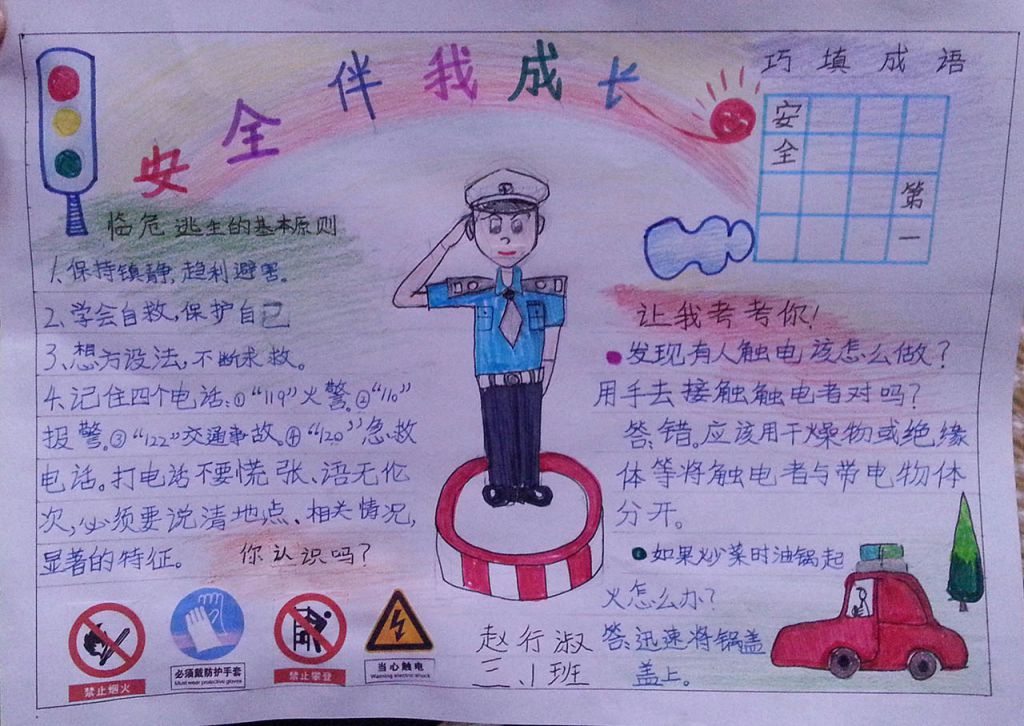 安全伴我成长
巧填成语
安
全
第
一
临危逃生的基本原则
1、保持镇静,趋利避害。
2、学会自救,保护自己
3、想方设法,不断求救。
4、记住四个电话:①“119”火警。②“110”
报警。③“122”交通事故。④“120”急救
电话。打电话不要慌张、语无伦
次,必须要说清地点、相关情况,
显著的特征。
你认识吗?
禁止烟火
必须戴防护手套
Must wear protective gloves
禁止攀登
当心触电
Warning electric shock
让我考考你!
发现有人触电该怎么做?
用手去接触触电者对吗?
答:错。应该用干燥物或绝缘
体等将触电者与带电物体
分开。
如果炒菜时油锅起
火怎么办?
答:迅速将锅盖
盖上。
赵行淑
三、1班